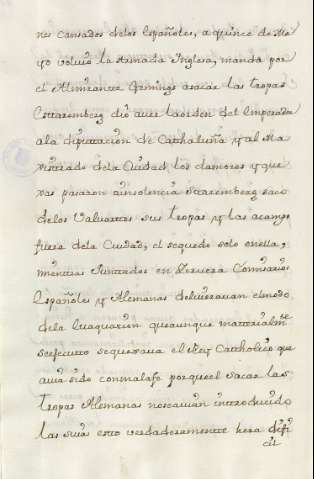 nes cansados delos Españoles, a quince de Ma
yo volvio la Armada Inglesa, manda por
el Almirante Gemings asacar las tropas
Estaremberg dio aver la orden del Emperador
ala diputacion de Cathaluña y al Ma
xistrado dela Ciudad, los clamores y que
xas pasaron a insolencia Staremberg saco
delos Valuartes sus tropas y las acampo
fuera dela Ciudad, el sequedo solo enella,
mientras Juntados en Zervera Comisarios
Españoles y Alemanes deliveravan el modo
dela Evaquacion que aunque materialmte
seefecutto sequexava el Rey Catthólico que
avia sido con mala fe porque el sacar las
tropas Alemanas no se avian introducido
las suias esto verdaderamentte hera difi
cil